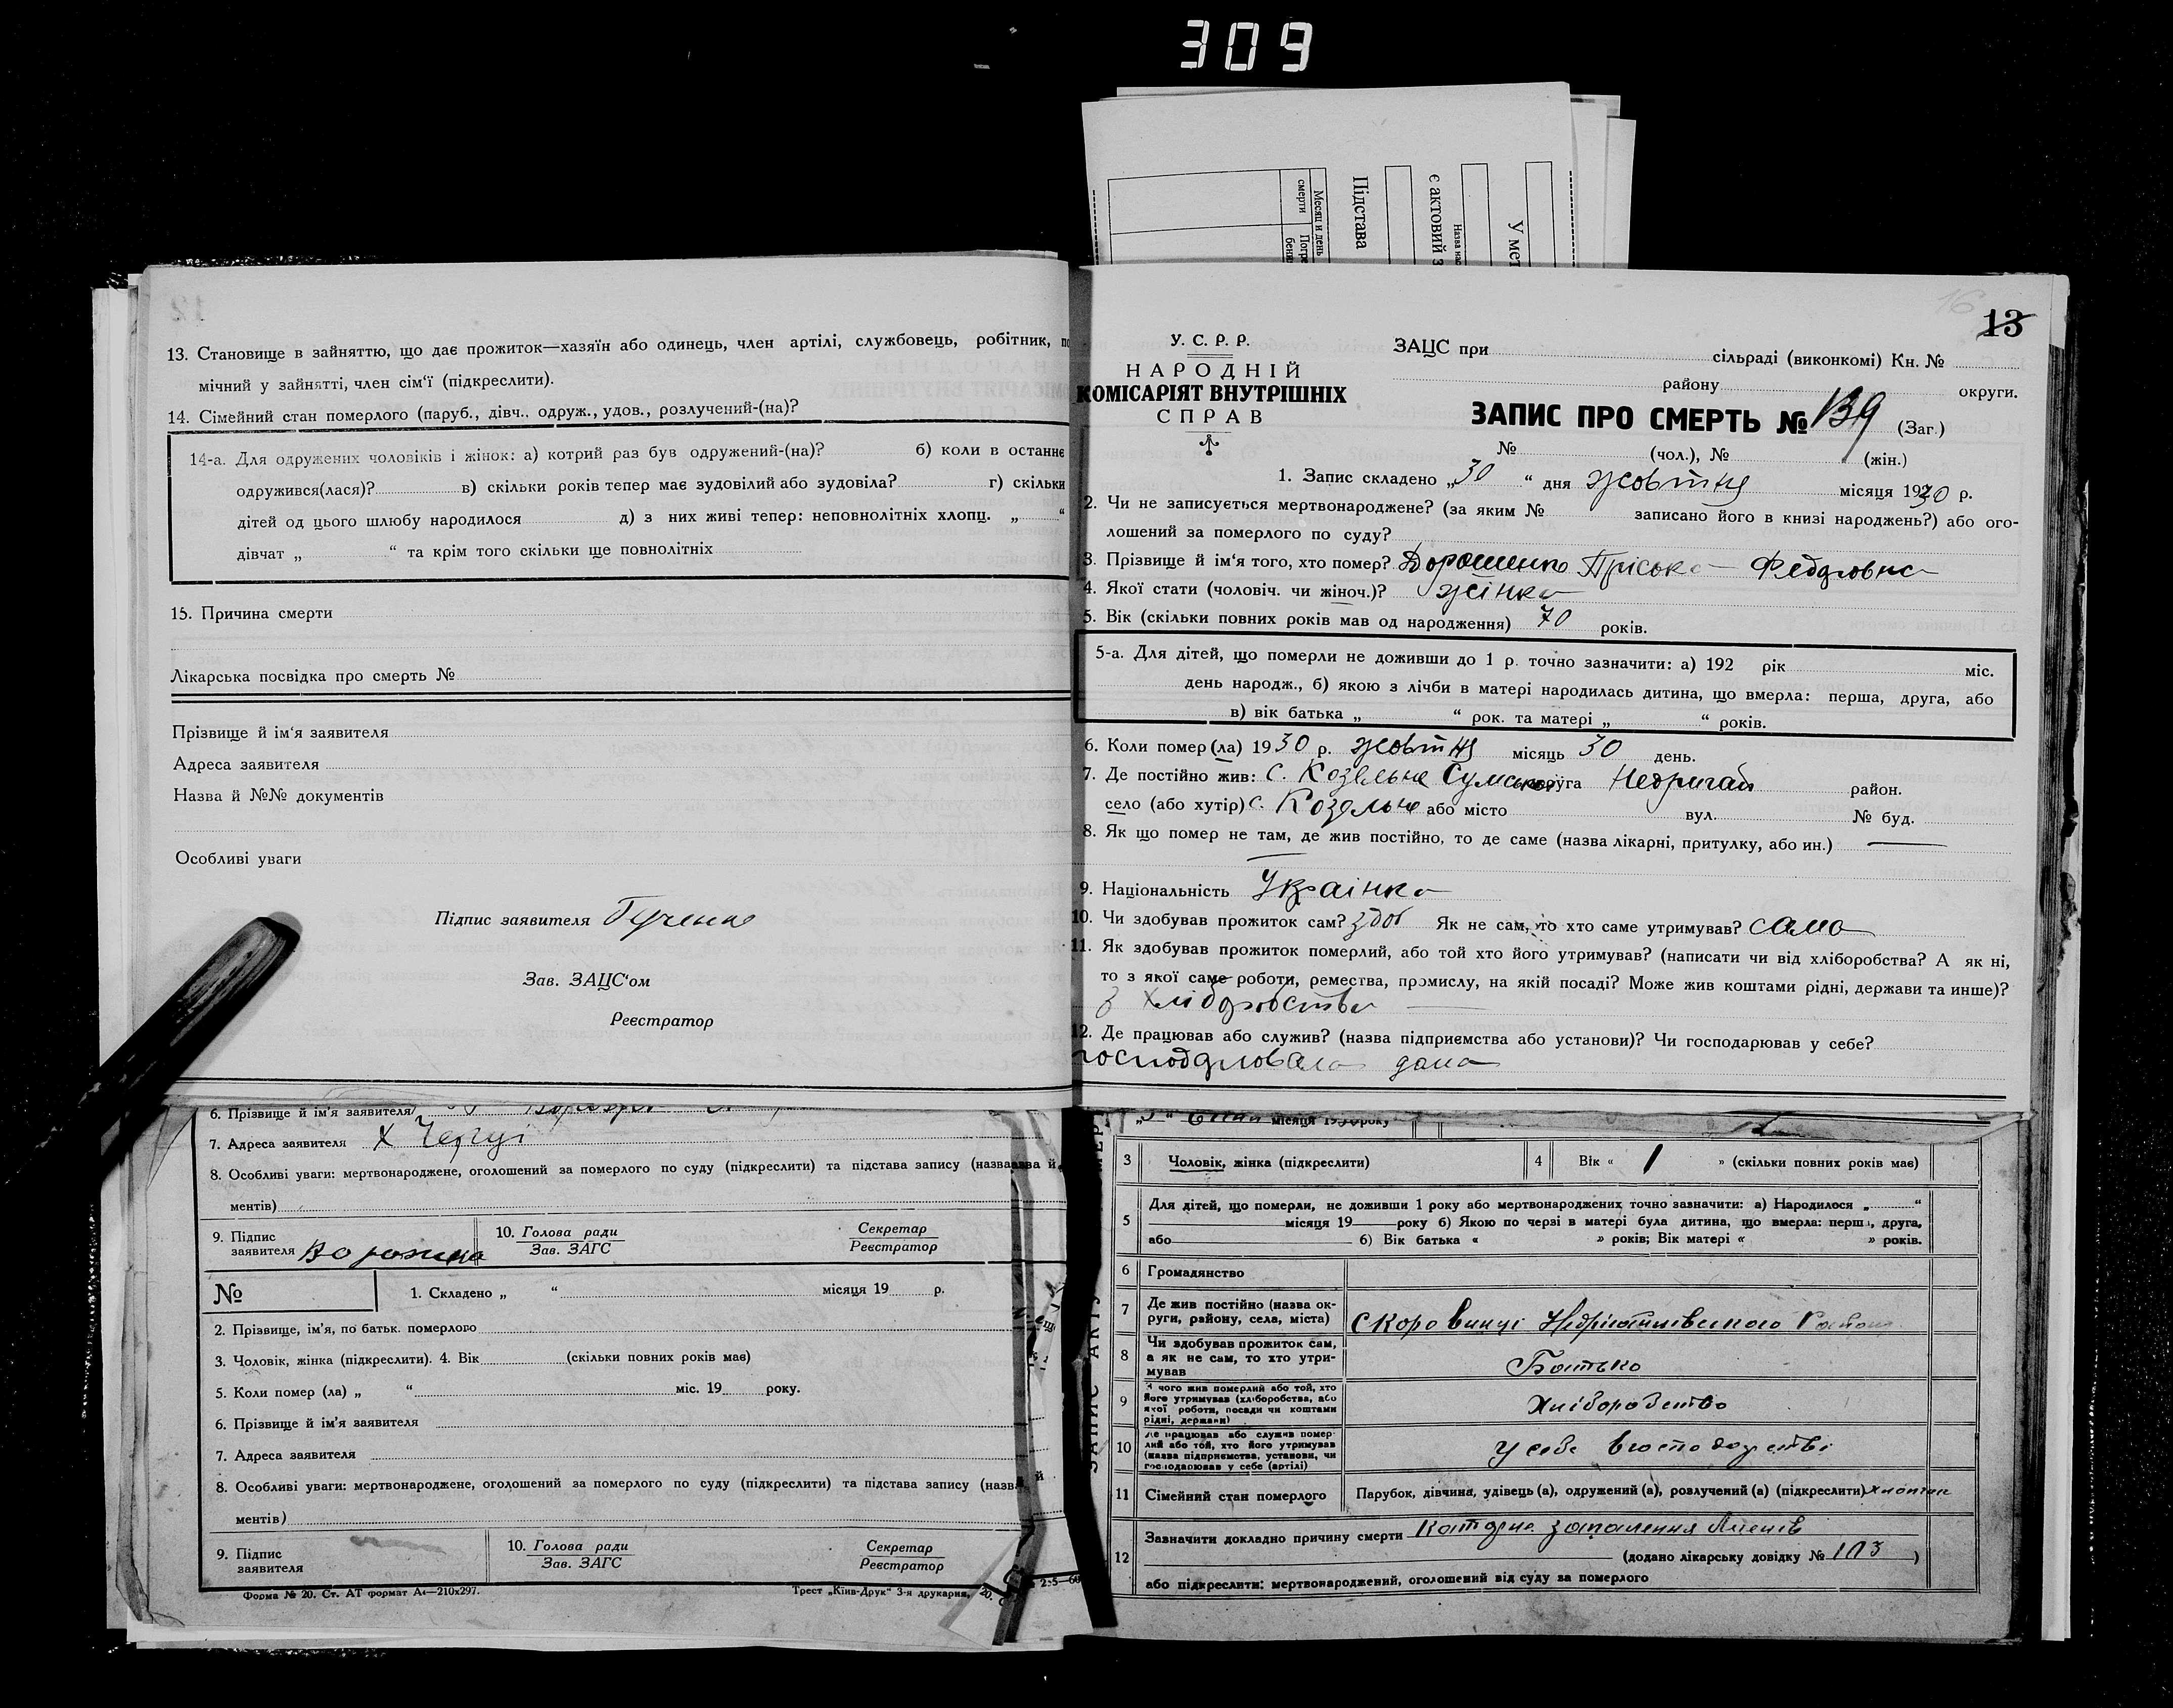 309
Месяц и день
смерти
Підстава
є актовий з
Назва нас
У мет
13. Становище в зайняттю, що дає прожиток—хазяїн або одинець, член артілі, службовець, робітник,
мічний у зайнятті, член сім'ї (підкреслити).
14. Сімейний стан померлого (паруб., дівч., одруж., удов., розлучений-(на)?
14-а. Для одружених чоловіків і жінок: а) котрий раз був одружений-(на)? б) коли в останнє
одружився(лася)? в) скільки років тепер має зудовілий або зудовіла? г) скільки
дітей од цього шлюбу народилося д) з них живі тепер: неповнолітніх хлопц. „ “
дівчат „ “ та крім того скільки ще повнолітніх
15. Причина смерти
Лікарська посвідка про смерть №
Прізвище й ім'я заявителя
Адреса заявителя
Назва й №№ документів
Особливі уваги
Підпис заявителя
Зав. ЗАЦС'ом
Реєстратор
6. Прізвище й ім'я заявителя
7. Адреса заявителя х
8. Особливі уваги: мертвонароджене, оголошений за померлого по суду (підкреслити) та підстава запису (назва й
ментів)
9. Підпис заявителя 10. Голова ради Зав. ЗАГС Секретар Реєстратор
№ 1. Складено „ “ місяця 19 р.
2. Прізвище, ім'я, по батьк. померлого
3. Чоловік, жінка (підкреслити). 4. Вік (скільки повних років має)
5. Коли помер (ла) „ “ міс. 19 року.
6. Прізвище й ім'я заявителя
7. Адреса заявителя
8. Особливі уваги: мертвонароджене, оголошений за померлого по суду (підкреслити) та підстава запису (назв й
ментів)
9. Підпис заявителя 10. Голова ради Зав. ЗАГС Секретар Реєстратор
Форма № 20. Ст. АТ формат А4—210х297. Трест „Київ-Друк" 3-я друкарня,
16
13
У. С. Р. Р.
НАРОДНІЙ
КОМІСАРІЯТ ВНУТРІШНІХ
СПРАВ
ЗАЦС при сільраді (виконкомі) Кн. №
району округи.
ЗАПИС ПРО СМЕРТЬ № 139 (Заг.)
№ (чол.), № (жін.)
1. Запис складено „30 “ дня жовтня місяця 1930 р.
2. Чи не записується мертвонароджене? (за яким № записано його в книзі народжень?) або ого-
лошений за померлого по суду?
3. Прізвище й ім'я того, хто помер? Дорошенко Пріська Федоровна
4. Якої стати (чоловіч. чи жіноч.)? жінка
5. Вік (скільки повних років мав од народження) 70 років.
5-а. Для дітей, що померли не доживши до 1 р. точно зазначити: а) 192 рік міс.
день народж., б) якою з лічби в матері народилась дитина, що вмерла: перша, друга, або
в) вік батька „ “ рок. та матері „ “ років.
6. Коли помер (ла) 1930 р. жовтня місяць 30 день.
7. Де постійно жив: с. Козельне Сумської округа Недригай район.
село (або хутір) с. Козельне або місто вул. № буд.
8. Як що помер не там, де жив постійно, то де саме (назва лікарні, притулку, або ин.) —
9. Національність Українка
10. Чи здобував прожиток сам? здоб Як не сам, то хто саме утримував? сама
11. Як здобував прожиток померлий, або той хто його утримував? (написати чи від хліборобства? А як ні,
то з якої саме роботи, ремества, промислу, на якій посаді? Може жив коштами рідні, держави та инше)?
з хліборобства
12. Де працював або служив? (назва підприємства або установи)? Чи господарював у себе?
господаровала дома
місяця 1930 року
3 Чоловік, жінка (підкреслити) 4 Вік « 1 » (скільки повних років має)
5 Для дітей, що померли, не доживши 1 року або мертвонароджених точно зазначити: а) Народилося „ “
місяця 19 року б) Якою по черзі в матері була дитина, що вмерла: перша, друга,
або б) Вік батька « » років; Вік матері « » років.
6 Громадянство
7 Де жив постійно (назва ок-
руги, району, села, міста)
8 Чи здобував прожиток сам,
а як не сам, то хто утри-
мував Батько
9 З чого жив померлий або той, хто
його утримував (хліборобства, або
якої роботи, посади чи коштами
рідні, держави) Хліборобство
10 Де працював або служив помер-
лий або той, хто його утримував
(назва підприємства, установи, чи
господарював у себе (артілі) У себе в господарстві
11 Сімейний стан померлого Парубок, дівчина, удівець (а), одружений (а), розлучений (а) (підкреслити) хлопчик
12 Зазначити докладно причину смерти запалення легенів
(додано лікарську довідку № 103 )
або підкреслити: мертвонароджений, оголошений від суду за померлого